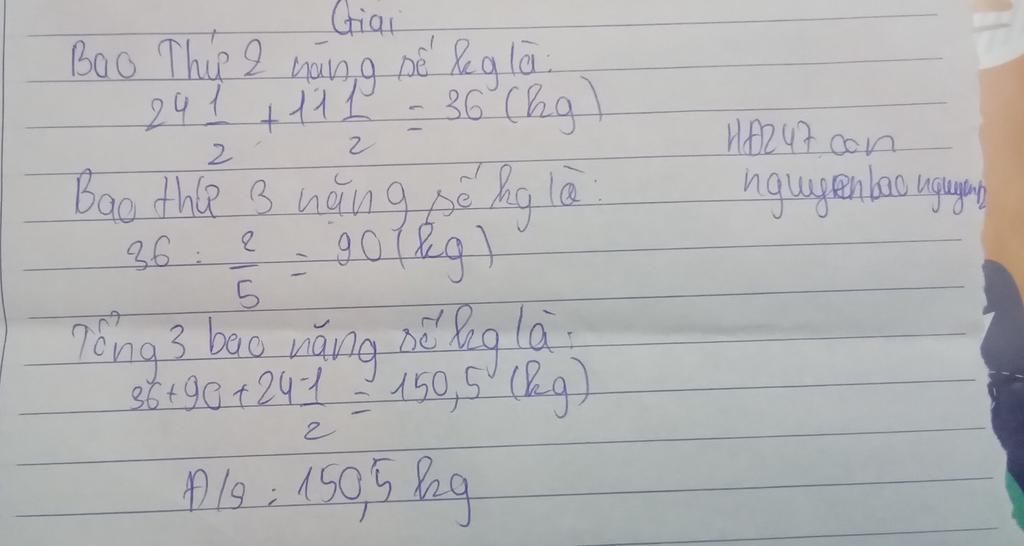 Giải
Bao Thứ 2 nặng số kg là:
24 1/2 + 11 1/2 = 36 (kg)
Bao thứ 3 nặng số kg là:
36 : 2/5 = 90 (kg)
Tổng 3 bao nặng số kg là:
36+90+24 1/2 = 150,5 (kg)
Đ/s : 150,5 kg
HĐ247.con
nguyenbaonguyen